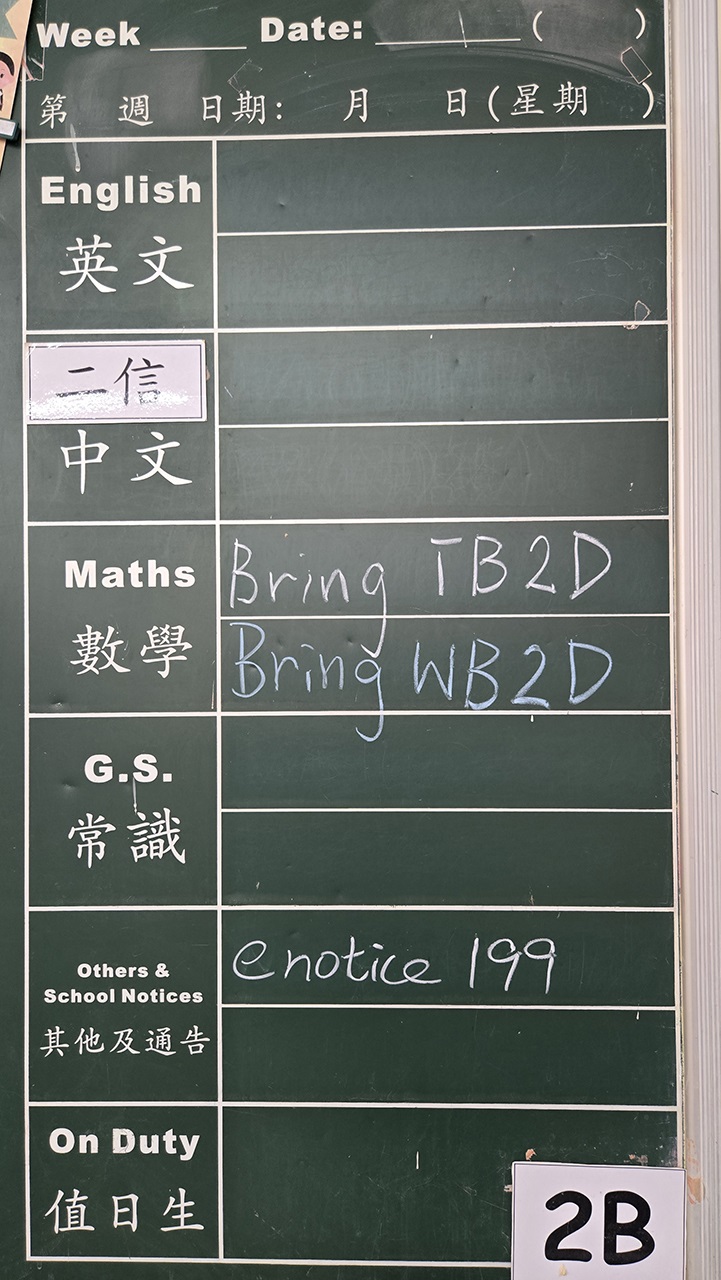 Week ______ Date: __________ ( )
第 週 日期: 月 日(星期 )
English
英文
二信
中文
Maths
數學
Bring TB2D
Bring WB2D
G.S.
常識
Others &
School Notices
其他及通告
e notice 199
On Duty
值日生
2B